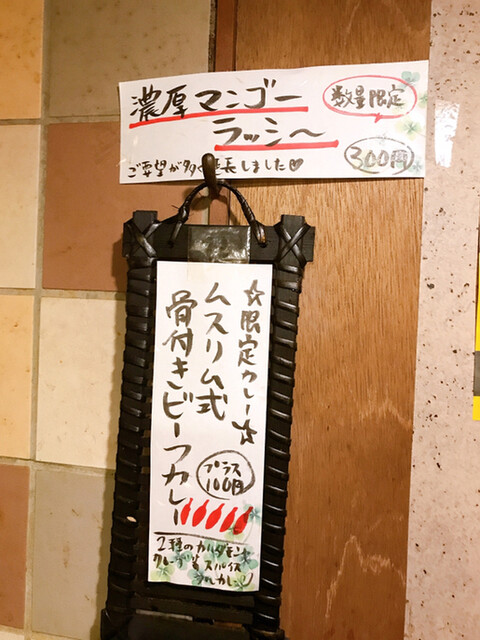 濃厚マンゴー
ラッシ〜
数量限定
300円
ご要望が多く延長しました♡
☆限定カレー☆
ムスリム式
骨付きビーフカレー
プラス
100円
2種のカルダモン
クローブ
スパイス
カレー